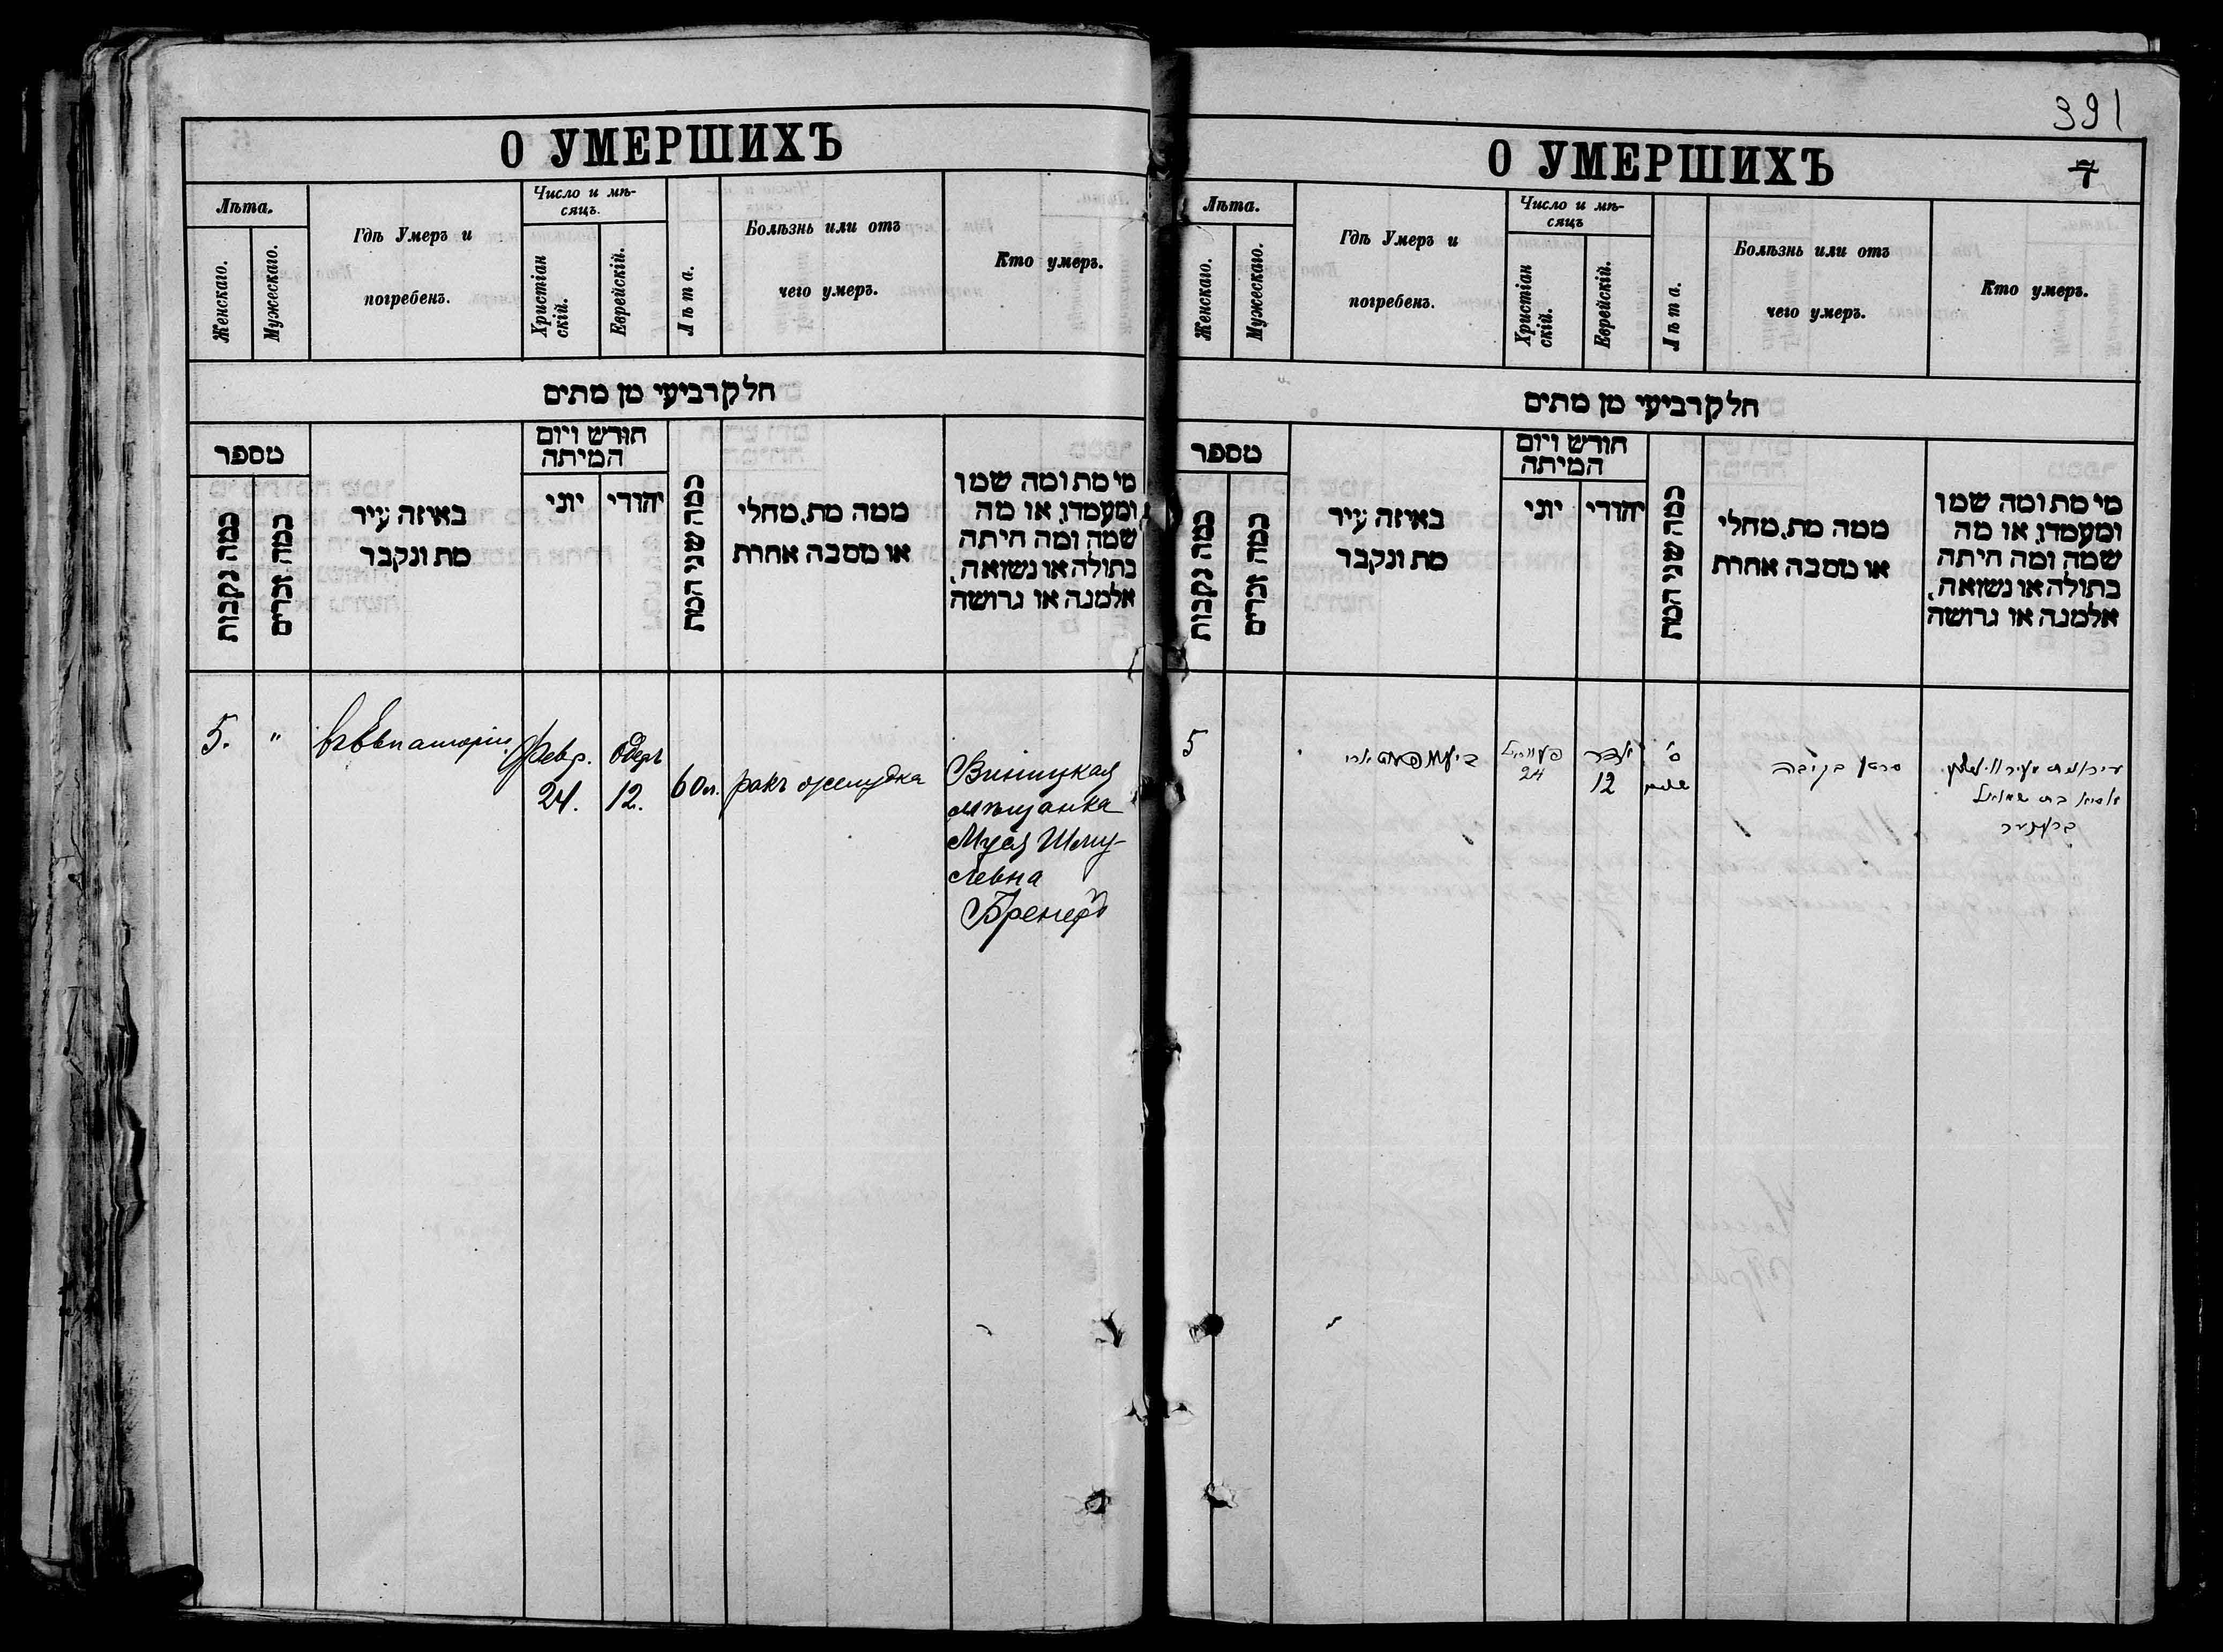 391
О УМЕРШИХЪ
Лѣта.
Женскаго.
Мужескаго.
Гдѣ Умеръ и
погребенъ.
Число и мѣ-
сяцъ.
Христіан
скій.
Еврейскій.
Лѣта.
Болѣзнь или отъ
чего умеръ.
Кто умеръ.
חלק רביעי מן מתים
מספר
כמה נקבות
כמה זכרים
באיזה עיר
מת ונקבר
חודש ויום
המיתה
יוני
יהודי
כמה שני המת
ממה מת, מחלי
או מסבה אחרת
מי מת ומה שמו
ומעמדו, או מה
שמה ומה היתה
בתולה או נשואה,
אלמנה או גרושה
5.
"
въ Евпаторіи
Февр.
24.
Одеръ
12.
60 л.
ракъ желудка
Виницкая
мѣщанка
Шму-
левна
Бренеръ
О УМЕРШИХЪ
7
Лѣта.
Женскаго.
Мужескаго.
Гдѣ Умеръ и
погребенъ.
Число и мѣ-
сяцъ
Христіан
скій.
Еврейскій.
Лѣта.
Болѣзнь или отъ
чего умеръ.
Кто умеръ.
חלק רביעי מן מתים
מספר
כמה נקבות
כמה זכרים
באיזה עיר
מת ונקבר
חודש ויום
המיתה
יוני
יהודי
כמה שני המת
ממה מת, מחלי
או מסבה אחרת
מי מת ומה שמו
ומעמדו, או מה
שמה ומה היתה
בתולה או נשואה,
אלמנה או גרושה
5
24
אדר
12
ס'
שנים
סרטן בקיבה
בת שמואל
ברענער